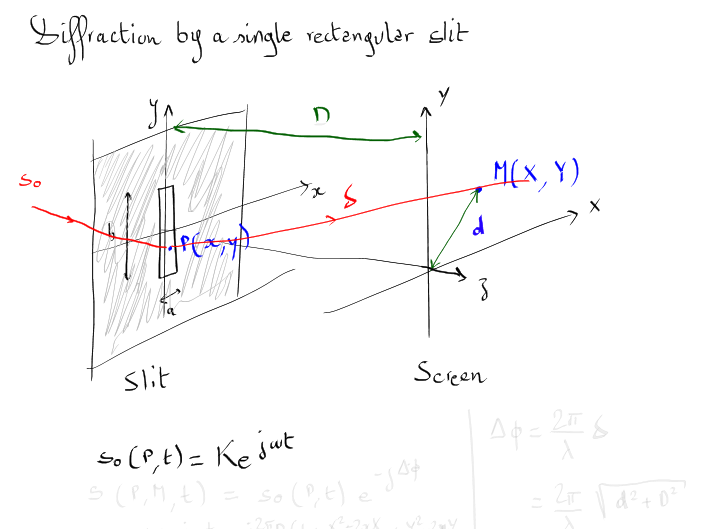 Diffraction by a single rectangular slit
y
D
Y
M(X, Y)
S₀
x
δ
X
b
P(x, y)
d
z
a
Slit
Screen
s₀(P,t) = Ke^jωt
Δφ = 2π/λ δ
s(P,M,t) = s₀(P,t) e^-jΔφ
= 2π/λ √d²+D²